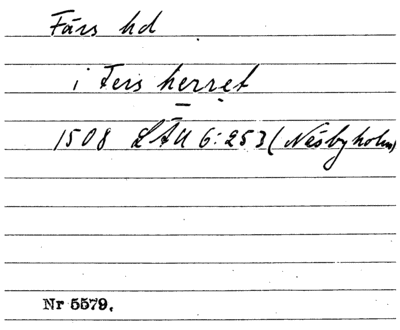 Färs hd
i Fers herret
1508 LÄU 6:253 (Nesbyholm)
Nr 5579.